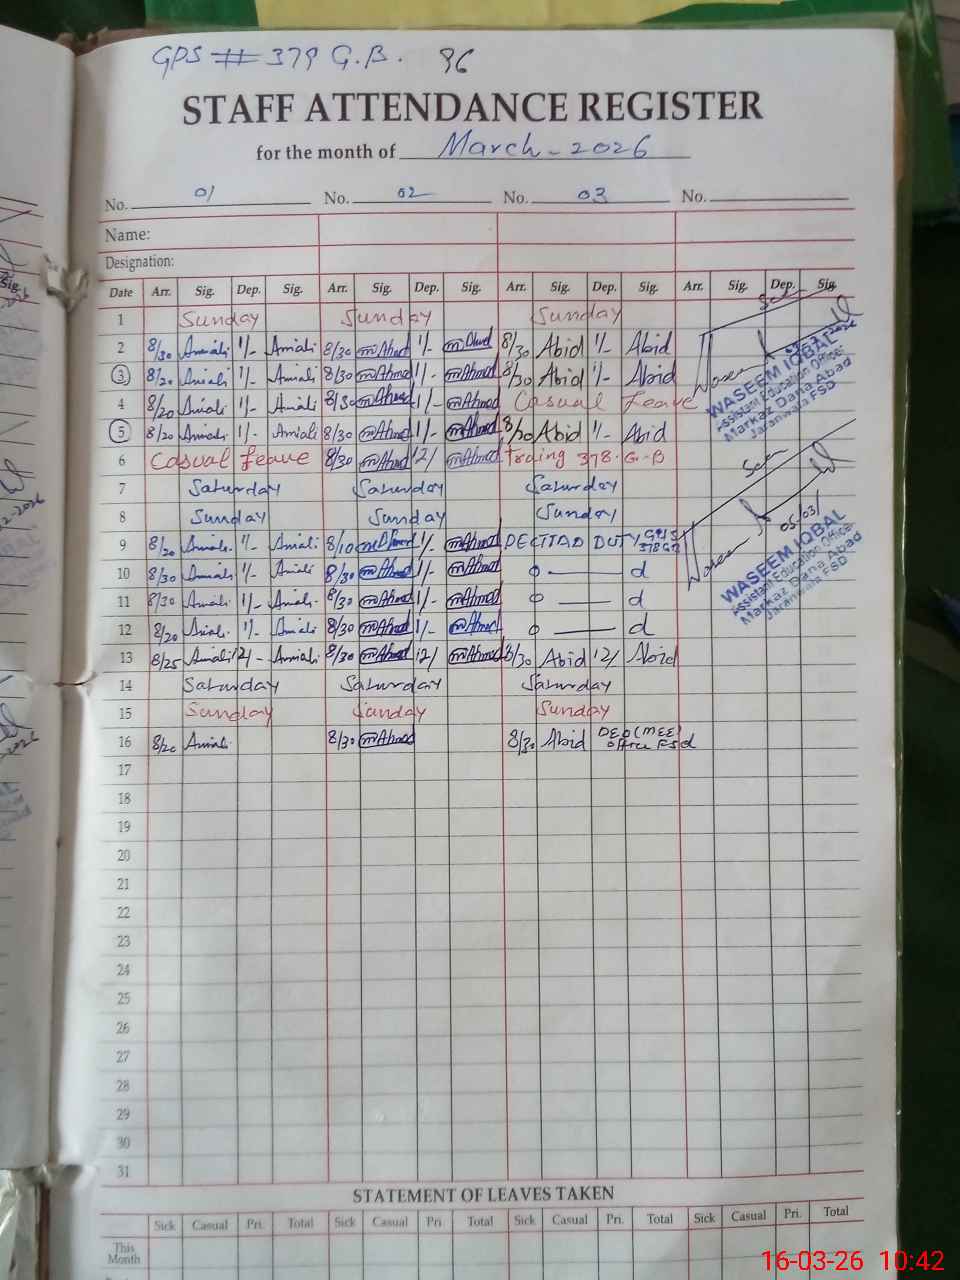 GPS # 379 G.B. 96
STAFF ATTENDANCE REGISTER
for the month of March-2026
No. 01 No. 02 No. 03 No.
Name:
Designation:
Date Arr. Sig. Dep. Sig. Arr. Sig. Dep. Sig. Arr. Sig. Dep. Sig. Arr. Sig. Dep. Sig.
1 Sunday Sunday Sunday
2 8/30 Amiali 1/- Amiali 8/30 mAhmed 1/- mAhmed 8/30 Abid 1/- Abid
3 8/20 Amiali 1/- Amiali 8/30 mAhmed 1/- mAhmed 8/30 Abid 1/- Abid
4 8/20 Amiali 1/- Amiali 8/30 mAhmed 1/- mAhmed Casual Leave
5 8/20 Amiali 1/- Amiali 8/30 mAhmed 1/- mAhmed 8/20 Abid 1/- Abid
6 Casual Leave 8/30 mAhmed 12/ mAhmed Traing 378.G-B
7 Saturday Saturday Saturday
8 Sunday Sunday Sunday
9 8/20 Amiali 1/- Amiali 8/10 mAhmed 1/- mAhmed DUTY GPS 378GB
10 8/30 Amiali 1/- Amiali 8/30 mAhmed 1/- mAhmed d
11 8/30 Amiali 1/- Amiali 8/30 mAhmed 1/- mAhmed d
12 8/20 Amiali 1/- Amiali 8/30 mAhmed 1/- mAhmed d
13 8/25 Amiali 12/- Amiali 8/30 mAhmed 12/ mAhmed 8/30 Abid 12/ Abid
14 Saturday Saturday Saturday
15 Sunday Sunday Sunday
16 8/20 Amiali 8/30 mAhmed 8/30 Abid DEO(MEE) office Fsd
17
18
19
20
21
22
23
24
25
26
27
28
29
30
31
Seen
WASEEM IQBAL
Assistant Education Officer
Markaz Dana Abad
Jaranwala FSD
Seen
05/03/
WASEEM IQBAL
Assistant Education Officer
Markaz Dana Abad
Jaranwala FSD
STATEMENT OF LEAVES TAKEN
Sick Casual Pri. Total Sick Casual Pri. Total Sick Casual Pri. Total Sick Casual Pri. Total
This Month
16-03-26 10:42